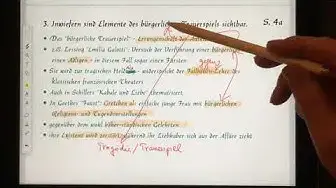 3. Inwiefern sind Elemente des bürgerlichen Trauerspiels sichtbar. S. 4a
Das "bürgerliche Trauerspiel" – Errungenschaft der
vgl. Lessing "Emilia Galotti": Versuch der Verführung einer bürgerlichen
einen Adligen – in diesem Fall sogar einen Fürsten
Sie wird zur tragischen – widerspricht der Fallhöhe-Lehre des
klassischen französischen Theaters
Auch in Schillers "Kabale und Liebe" thematisiert.
In Goethes "Faust": Gretchen als einfache junge Frau mit bürgerlichen
Religions- und Tugendvorstellungen
gegenüber dem wohl Gelehrten
ihre Existenz wird zerstört, während ihr Liebhaber sich aus der Affäre zieht
Tragödie/Trauerspiel